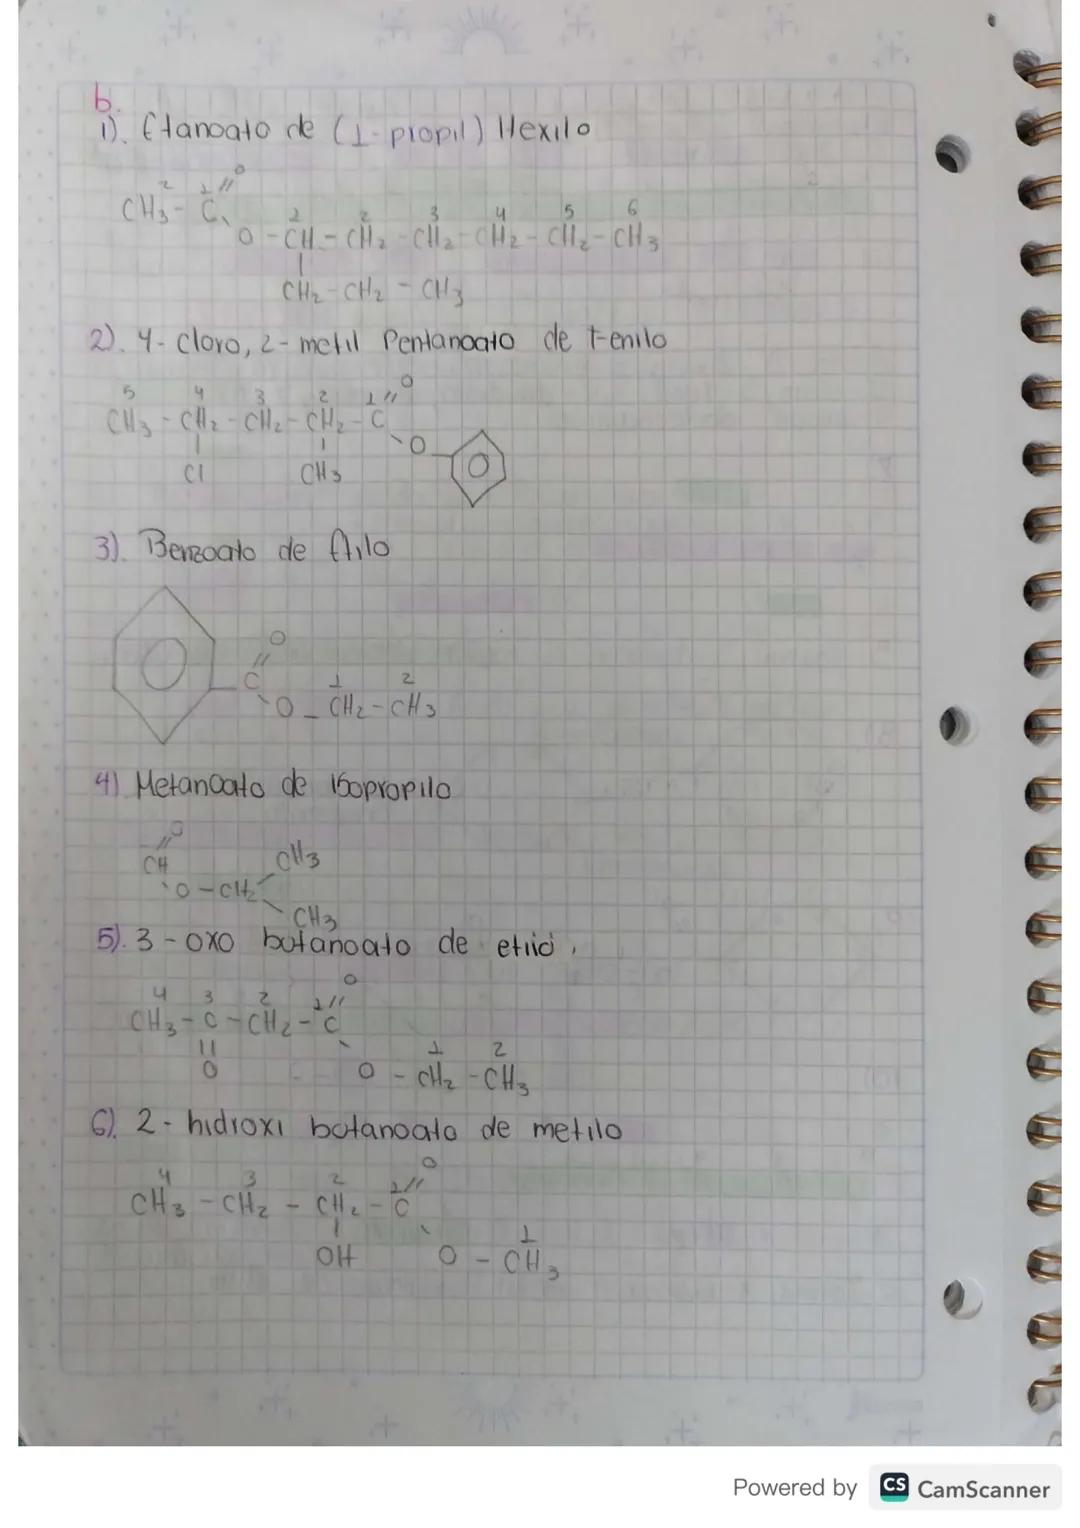 b.
1). Etanoato de (1-propil) Hexilo
O
2 1 //
CH3 - C
2 2 3 4 5 6
O - CH - CH2 - CH2 - CH2 - CH2 - CH3
|
CH2 - CH2 - CH3
2). 4- cloro, 2- metil Pentanoato de Fenilo
5 4 3 2 1 // O
CH3 - CH2 - CH2 - CH2 - C
| | O
Cl CH3
3). Benzoato de Etilo
O
//
C 1 2
O - CH2 - CH3
4) Metanoato de isopropilo
O
//
CH CH3
O - CH2
CH3
5). 3 - oxo butanoato de etilo.
O
4 3 2 1 //
CH3 - C - CH2 - C
|| 1 2
O O - CH2 - CH3
6). 2 - hidroxi butanoato de metilo
O
4 3 2 1 //
CH3 - CH2 - CH2 - C
| 1
OH O - CH3
Powered by CS CamScanner